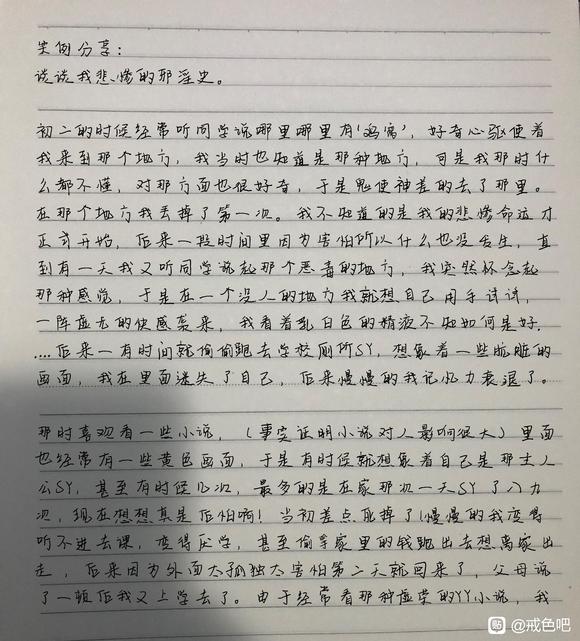 实例分享：
谈谈我悲惨的邪淫史。
初二的时候经常听同学说哪里哪里有"鸡窝"，好奇心驱使着
我来到那个地方，我当时也知道是那种地方，可是我那时什
么都不懂，对那方面也很好奇，于是鬼使神差的去了那里。
在那个地方我丢掉了第一次。我不知道的是我的悲惨命运才
正式开始，后来一段时间里因为害怕所以什么也没发生，直
到有一天我又听同学说起那个恶毒的地方，我突然怀念起
那种感觉，于是在一个没人的地方我就想自己用手试试，
一阵虚无的快感袭来，我看着乳白色的精液不知如何是好．
....后来一有时间就偷偷跑去学校厕所SY，想象着一些肮脏的
画面，我在里面迷失了自己，后来慢慢的我记忆力衰退了。
那时喜欢看一些小说，（事实证明小说对人影响很大）里面
也经常有一些黄色画面，于是有时候就想象着自己是那主人
公SY，甚至有时候几次，最多的是在家那次一天SY了八九
次，现在想想真是后怕啊！当初差点死掉了！慢慢的我变得
听不进去课，变得厌学，甚至偷拿家里的钱跑出去想离家出
走，后来因为外面太孤独太害怕第二天就回来了，父母说
了一顿后我又上学去了。由于经常看那种虚荣的YY小说，我
贴 @戒色吧